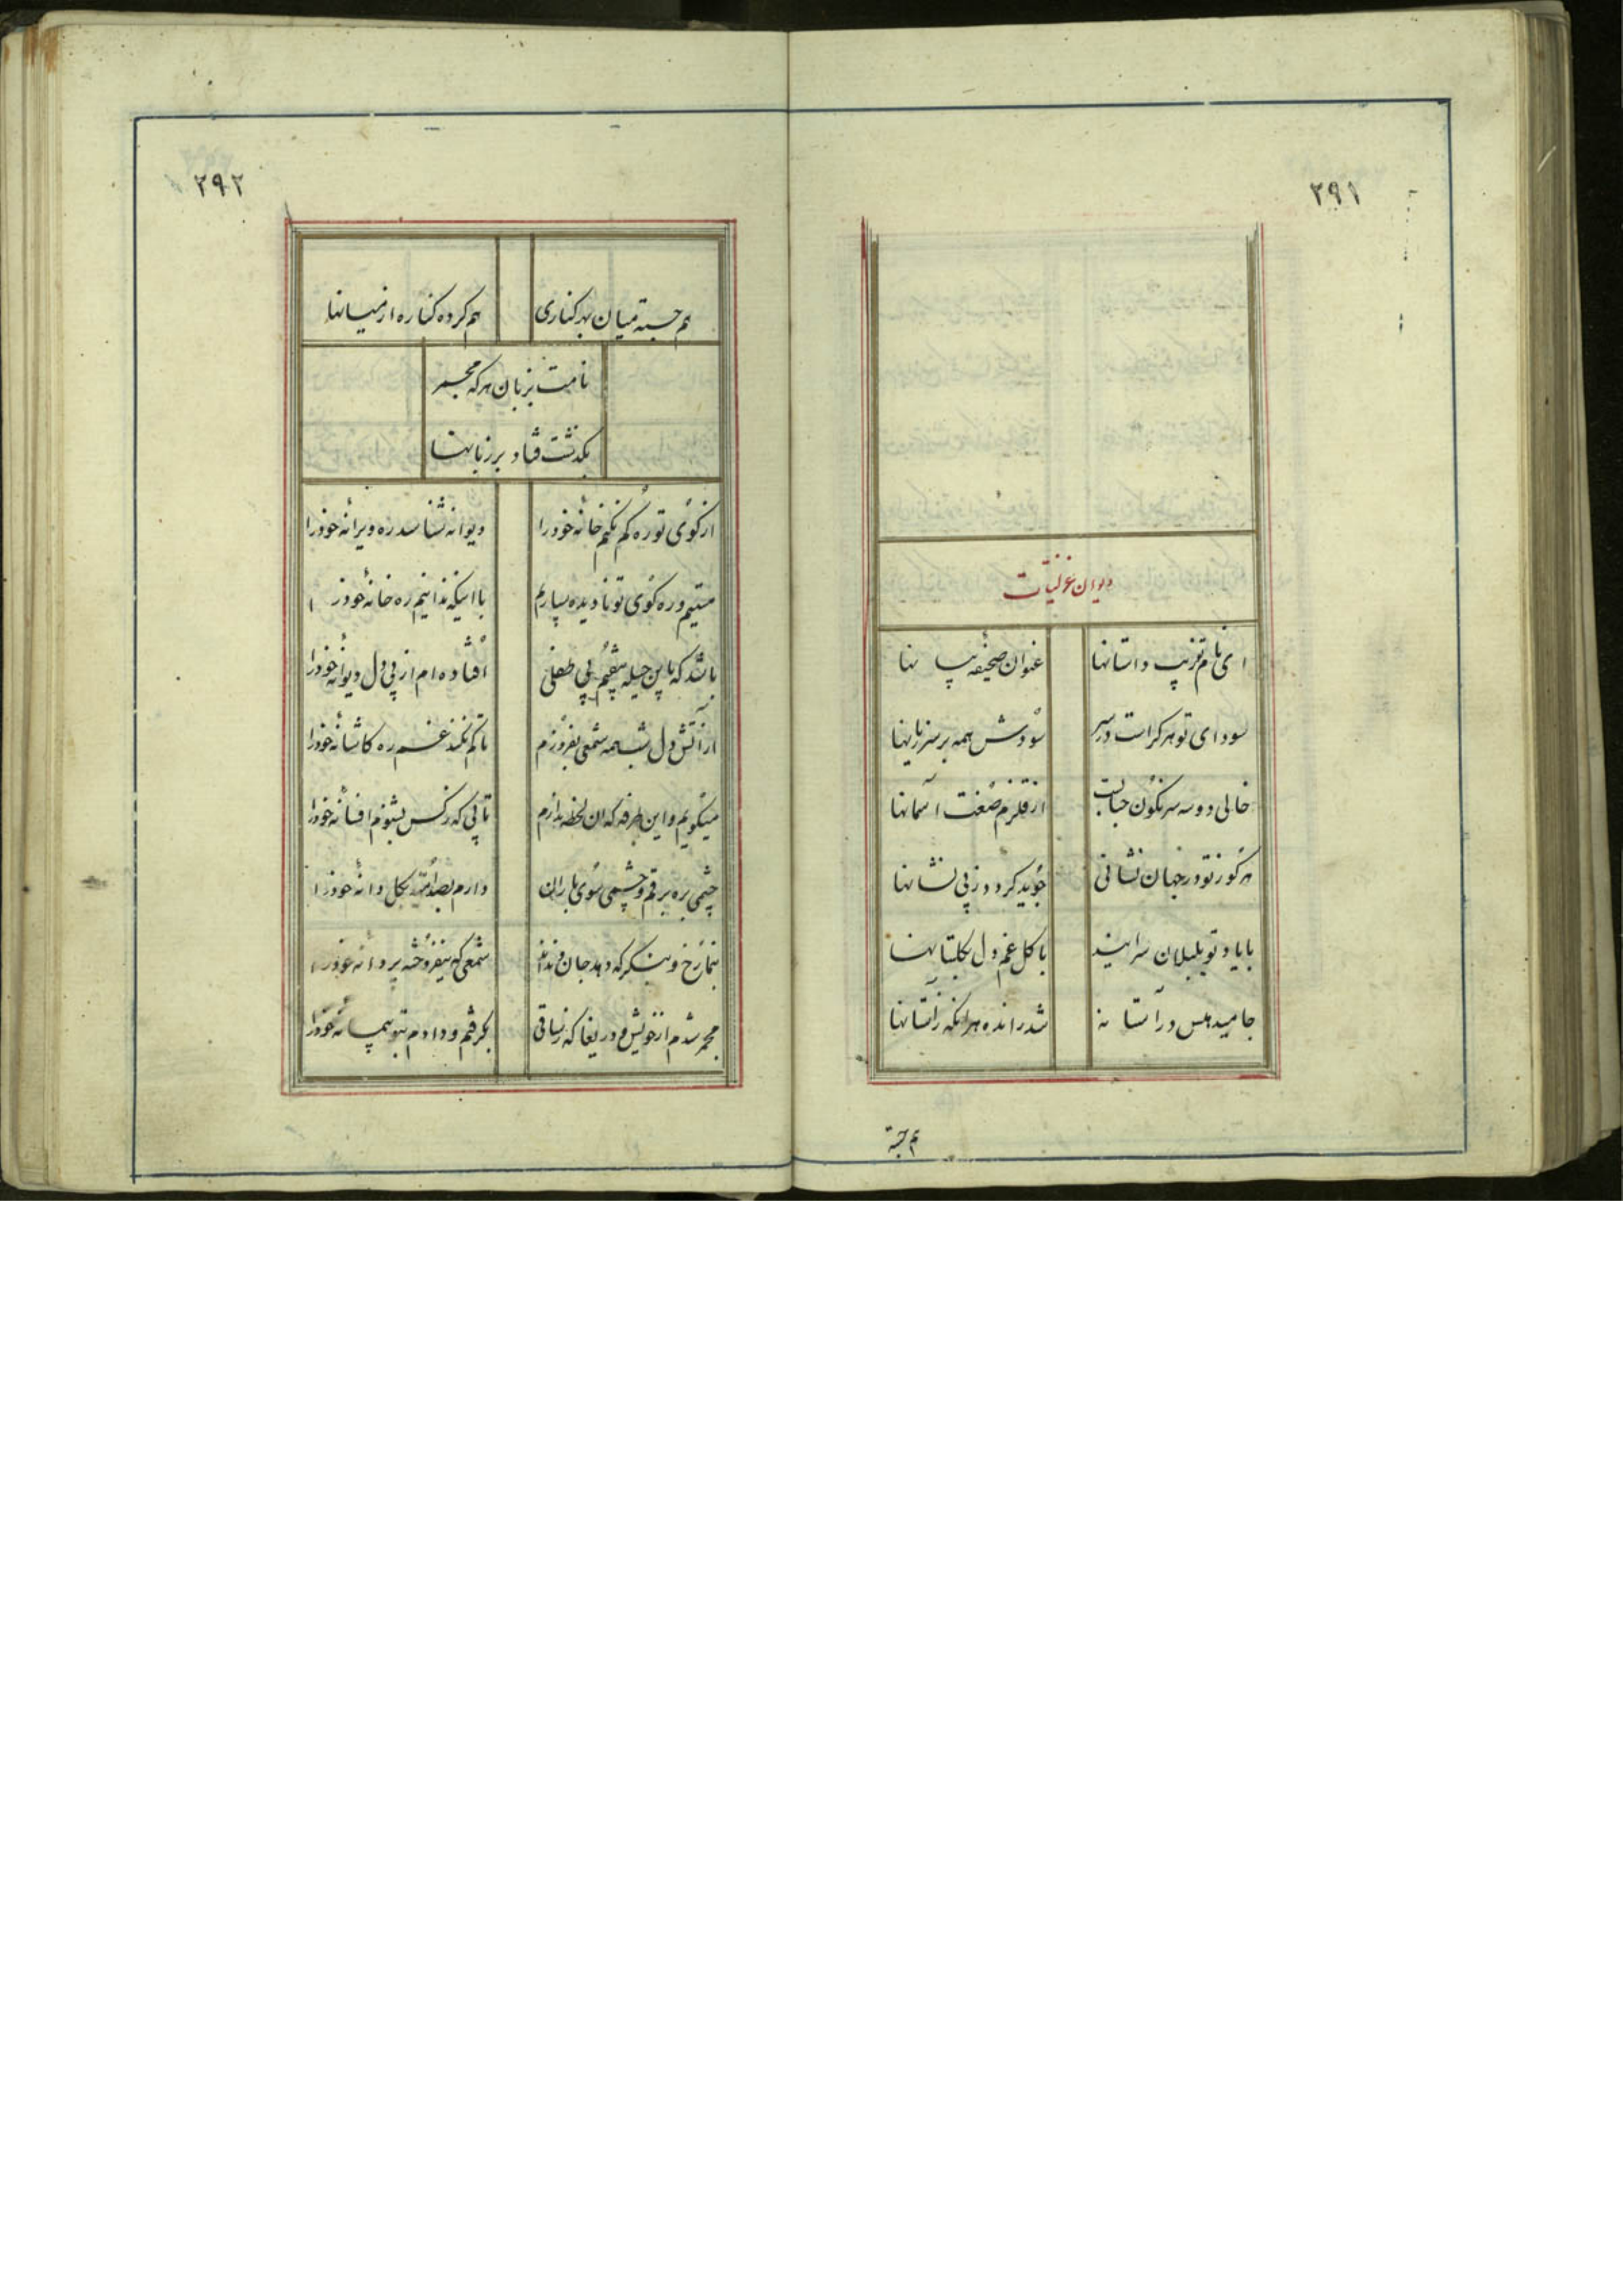 ۲۹۱
دیوان غزلیات
ای نام تو زیب داستانها عنوان صحیفه بیانها
سودای تو هر کراست در سر سودش همه بر سر زیانها
خالی دو سه سرنگون حبابست از قلزم صنعت آسمانها
هرگوز تو در جهان نشانی جوید گردد ز پی نشانها
با یاد تو بلبلان سرایند با گل غم دل بگلستانها
جامید هس در آستانه شد رانده هر آنکه ز آستانها
هم جسته
۲۹۲
هم جسته میان بهر کناری هم کرده کناره از میانها
نامت بزبان هر که مجمر
بگذشت فتاد بر زبانها
از کوی تو ره گم نکنم خانه خود را دیوانه شناسد ره ویرانه خود را
مستیم و ره کوی تو نادیده سپاریم با اینکه ندانیم ره خانه خود را
باشد که باین حیله بیفتم پی طفلی افتاده ام از پی دل دیوانه خود را
از آتش دل شب همه شمعی بفروزم تا گم نکند غم ره کاشانه خود را
میگویم و این طرفه که آن لحظه ندارم تابی که ز کس بشنوم افسانه خود را
چشمی بره برقم و چشمی سوی باران دارم بصد امید بگل دانه خود را
بنما رخ و بنگر که دهد جان و نداند شمعی که نیفروخته پروانه خود را
مجمر شدم از خویش و دریغا که ز ساقی بگرفتم و دادم بتو پیمانه خود را